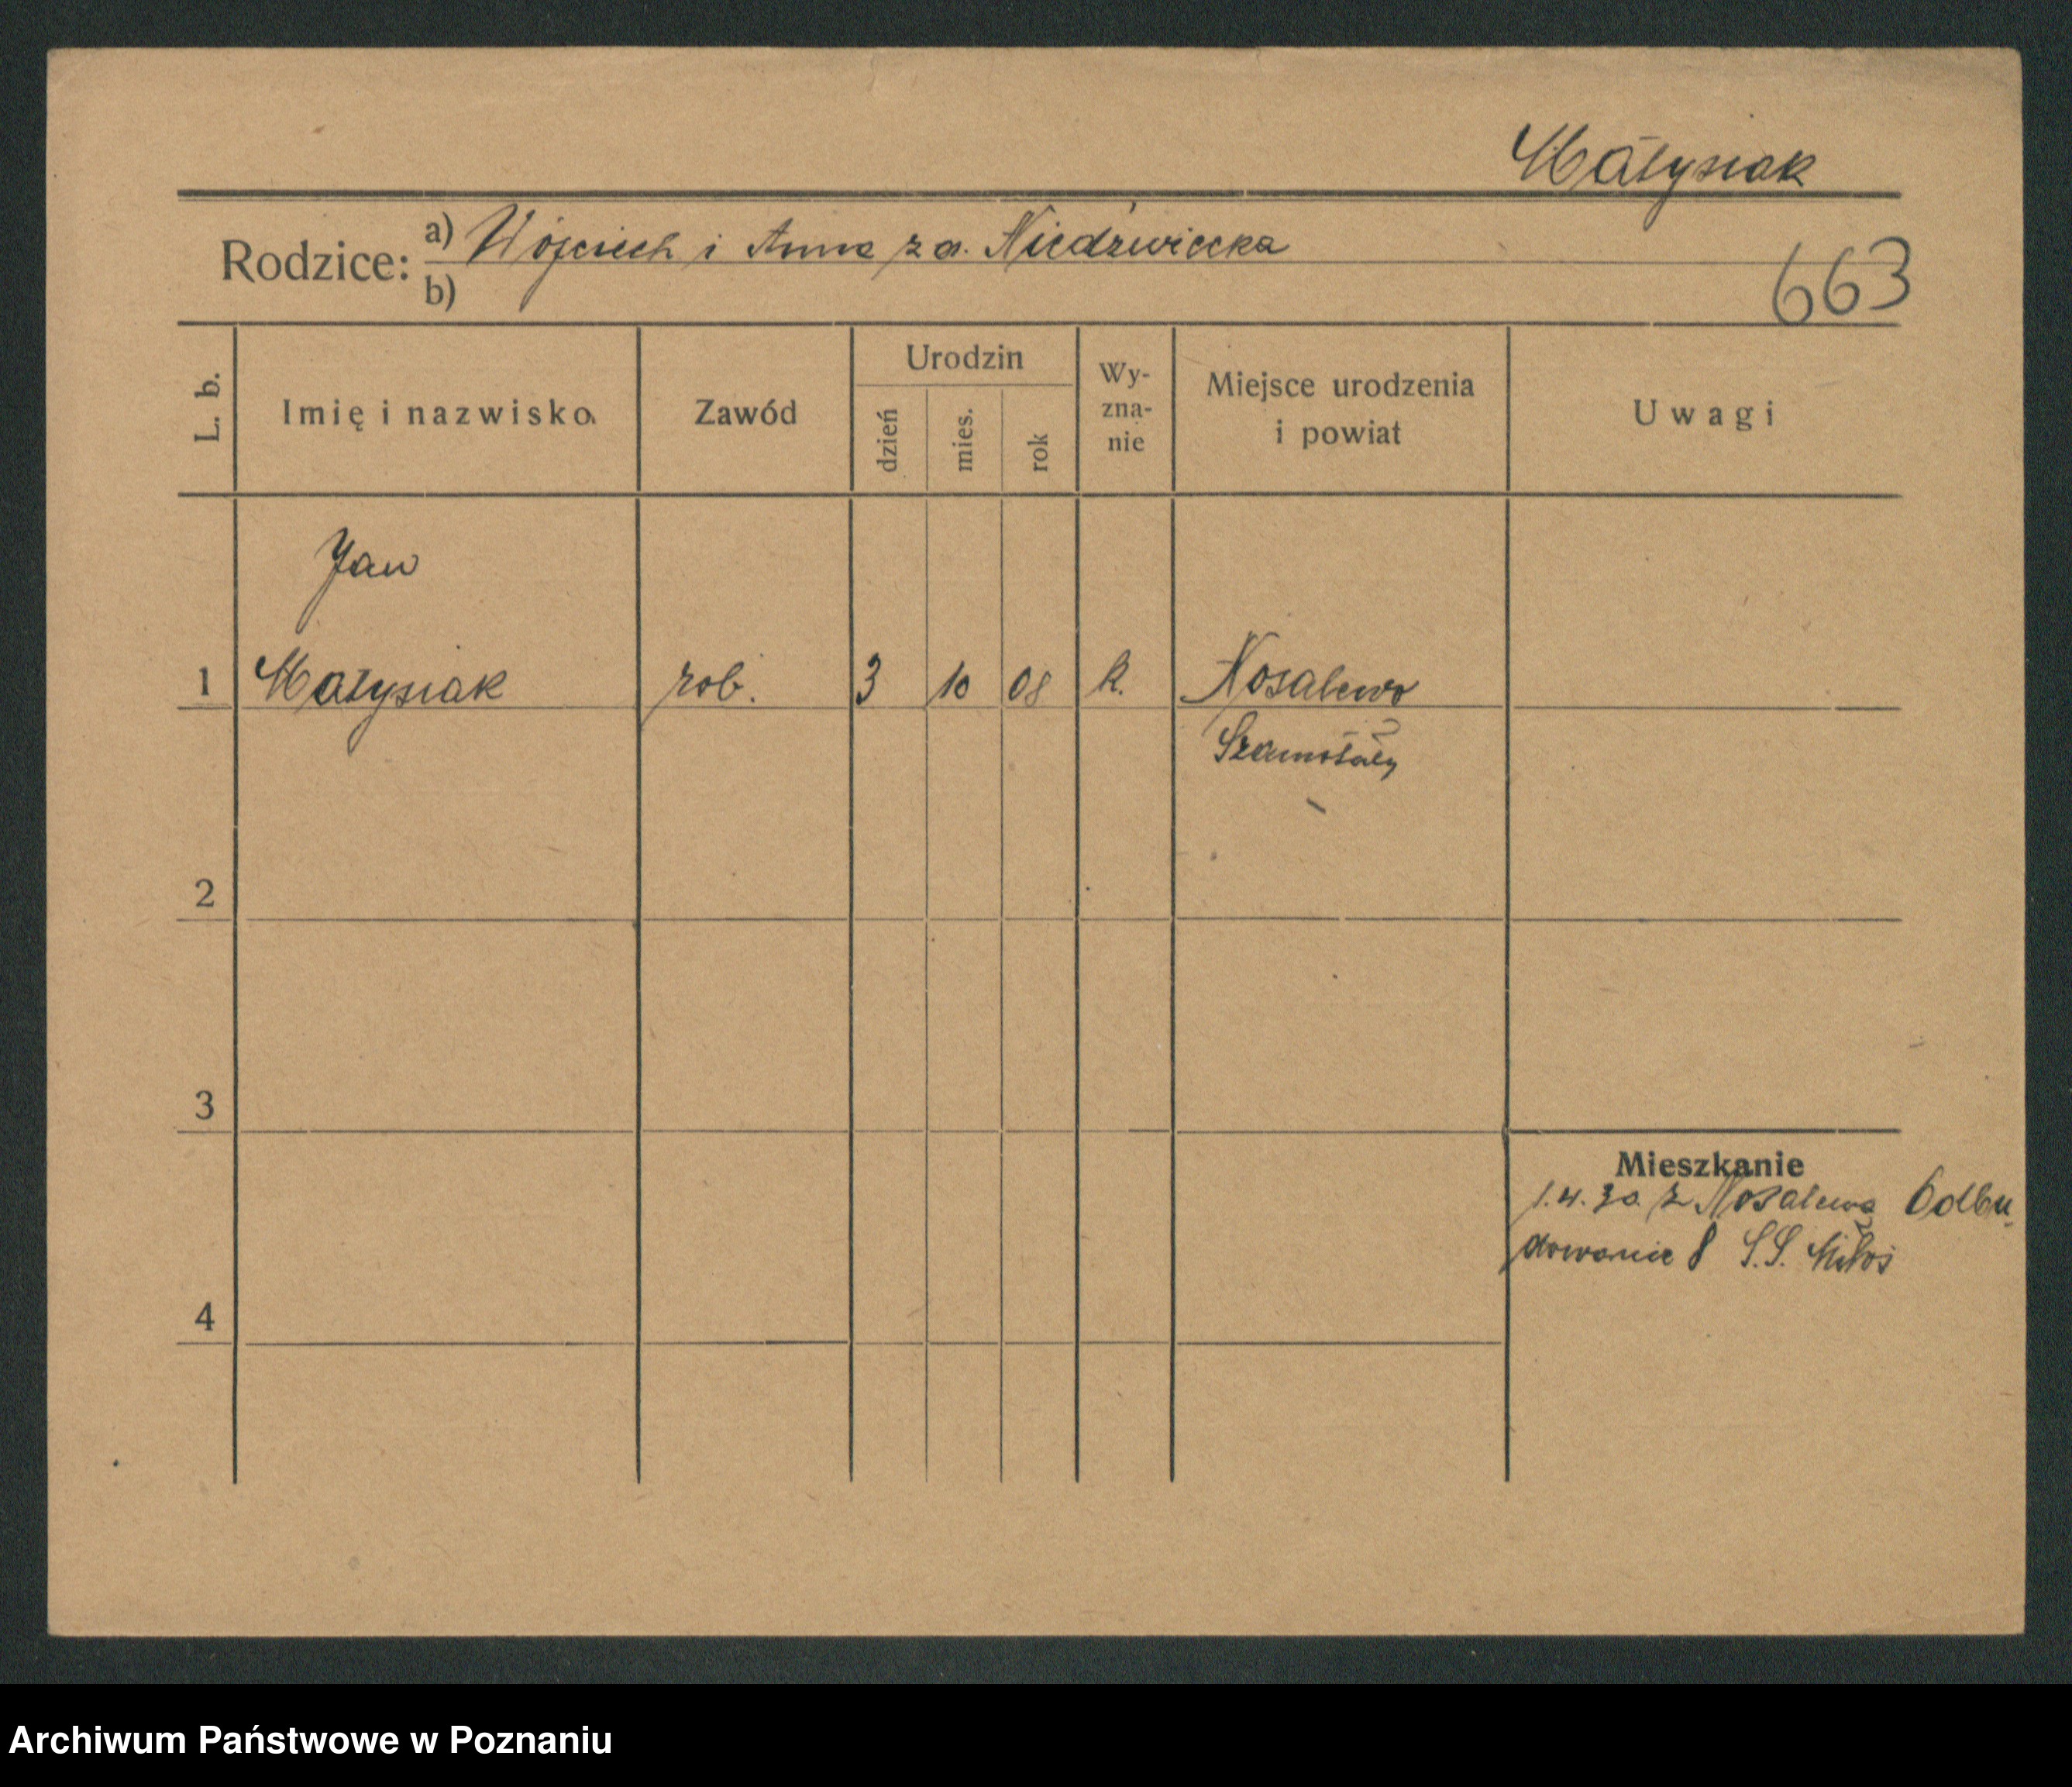 Małysiak
Rodzice: a) Wojciech i Anna z d. Niedzwiecka
b)
663
L. b.
Imię i nazwisko.
Zawód
Urodzin
dzień
mies.
rok
Wy-
zna-
nie
Miejsce urodzenia
i powiat
Uwagi
Jan
1 Małysiak rob. 3 10 08 k. Nosalewo
Szamotuły
2
3
Mieszkanie
1.4.30. z Nosalewa Odbu-
dowanie 8 S.S.
4
Archiwum Państwowe w Poznaniu